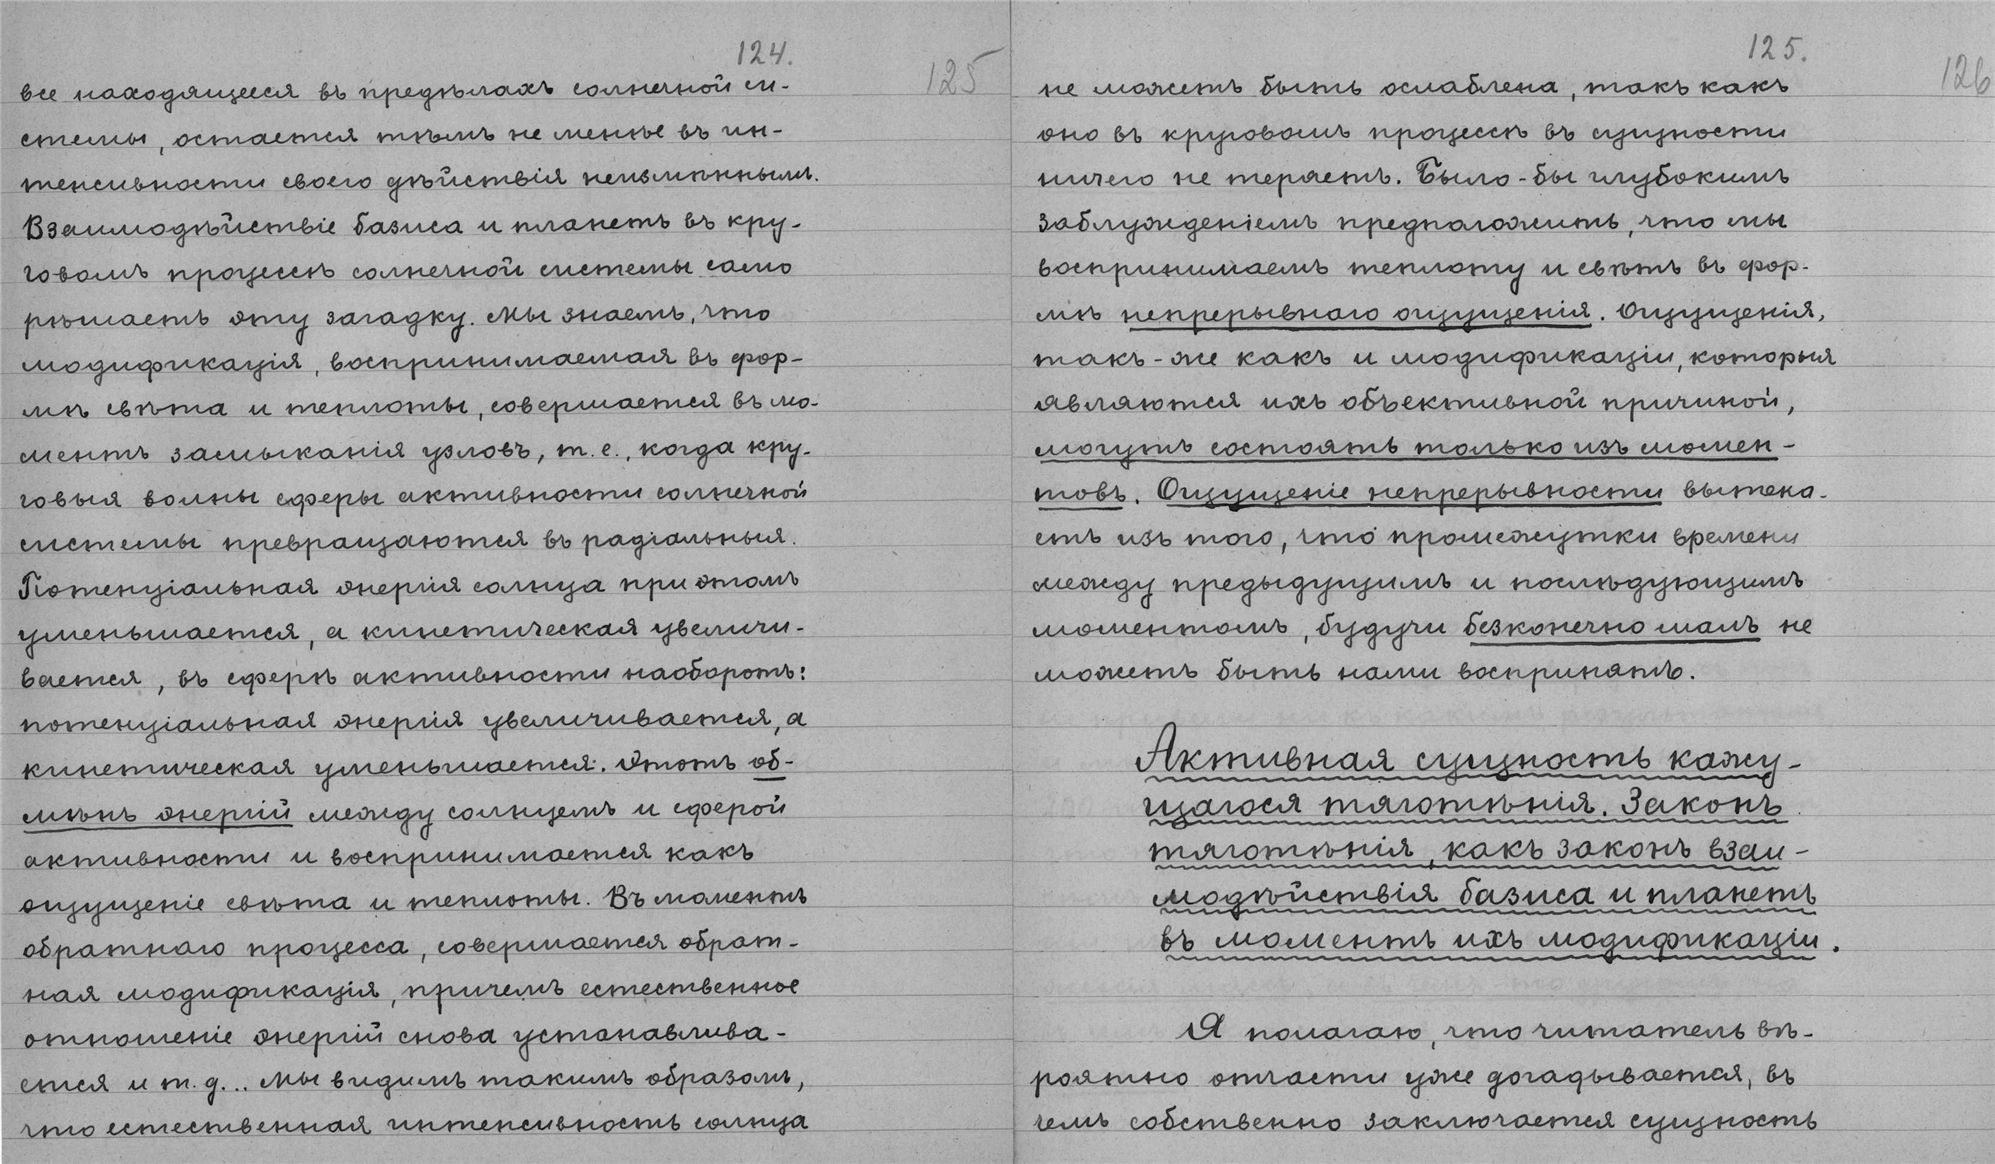 124.
125
все находящееся въ предѣлахъ солнечной си-
стемы, остается тѣмъ не менѣе въ ин-
тенсивности своего дѣйствія неизмѣннымъ.
Взаимодѣйствіе базиса и планетъ въ кру-
говомъ процессѣ солнечной системы само
рѣшаетъ эту загадку. Мы знаемъ, что
модификація, воспринимаемая въ фор-
мѣ свѣта и теплоты, совершается въ мо-
ментъ замыканія узловъ, т.е., когда кру-
говыя волны сферы активности солнечной
системы превращаются въ радіальныя.
Потенціальная энергія солнца при этомъ
уменьшается, а кинетическая увеличи-
вается, въ сферѣ активности наоборотъ:
потенціальная энергія увеличивается, а
кинетическая уменьшается. Этотъ об-
мѣнъ энергій между солнцемъ и сферой
активности и воспринимается какъ
ощущеніе свѣта и теплоты. Въ моментъ
обратнаго процесса, совершается обрат-
ная модификація, причемъ естественное
отношеніе энергій снова устанавлива-
ется и т.д... Мы видимъ такимъ образомъ,
что естественная интенсивность солнца
125.
126
не можетъ быть ослаблена, такъ какъ
оно въ круговомъ процессѣ въ сущности
ничего не теряетъ. Было-бы глубокимъ
заблужденіемъ предположить, что мы
воспринимаемъ теплоту и свѣтъ въ фор-
мѣ непрерывнаго ощущенія. Ощущенія,
такъ-же какъ и модификаціи, которыя
являются ихъ объективной причиной,
могутъ состоять только изъ момен-
товъ. Ощущеніе непрерывности вытека-
етъ изъ того, что промежутки времени
между предыдущимъ и послѣдующимъ
моментомъ, будучи безконечно малъ не
можетъ быть нами воспринятъ.
Активная сущность кажу-
щагося тяготѣнія. Законъ
тяготѣнія, какъ законъ взаи-
модѣйствія базиса и планетъ
въ моментъ ихъ модификаціи.
Я полагаю, что читатель вѣ-
роятно отчасти уже догадывается, въ
чемъ собственно заключается сущность